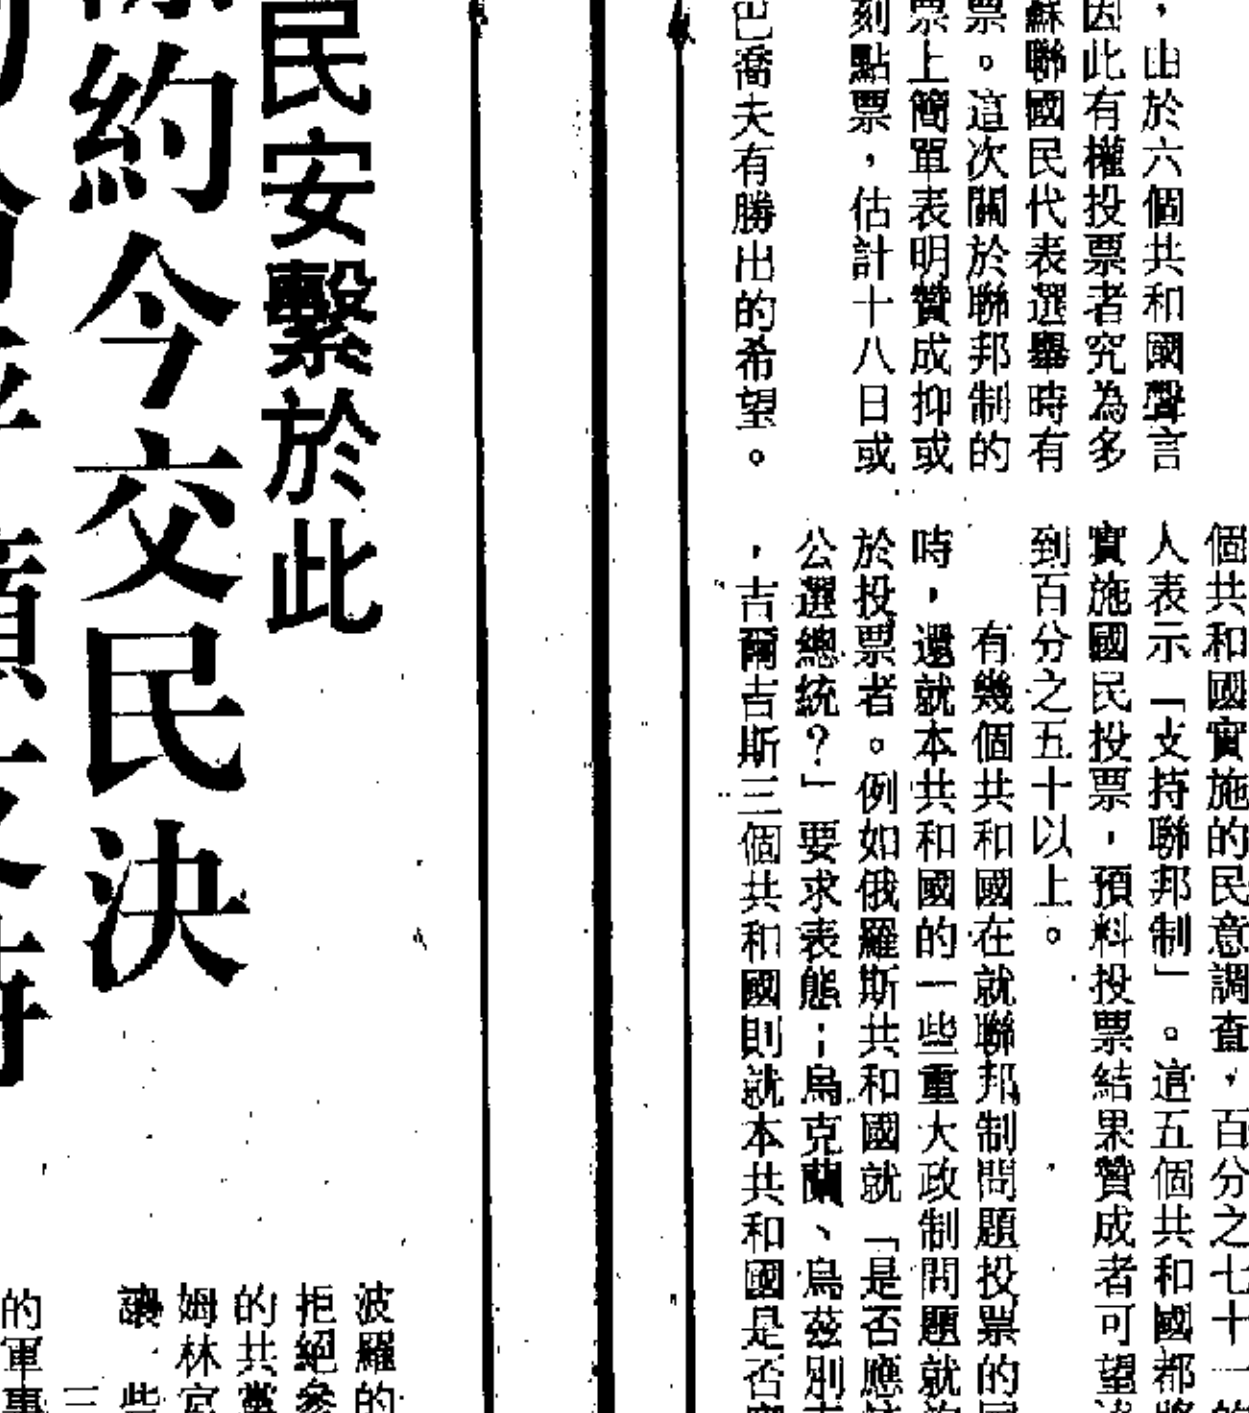 ，由於六個共和國聲言
因此有權投票者究為多
蘇聯國民代表選舉時有
票。這次關於聯邦制的
票上簡單表明贊成抑或
刻點票，估計十八日或
巴喬夫有勝出的希望。
個共和國實施的民意調查，百分之七十一的
人表示「支持聯邦制」。這五個共和國都將
實施國民投票，預料投票結果贊成者可望達
到百分之五十以上。
有幾個共和國在就聯邦制問題投票的同
時，還就本共和國的一些重大政制問題就詢
於投票者。例如俄羅斯共和國就「是否應該
公選總統？」要求表態；烏克蘭、烏茲別克
，吉爾吉斯三個共和國則就本共和國是否實
民安繫於此
約今交民決
波羅的
拒絕參
的共黨
姆林宮
讓
些
三
的軍事